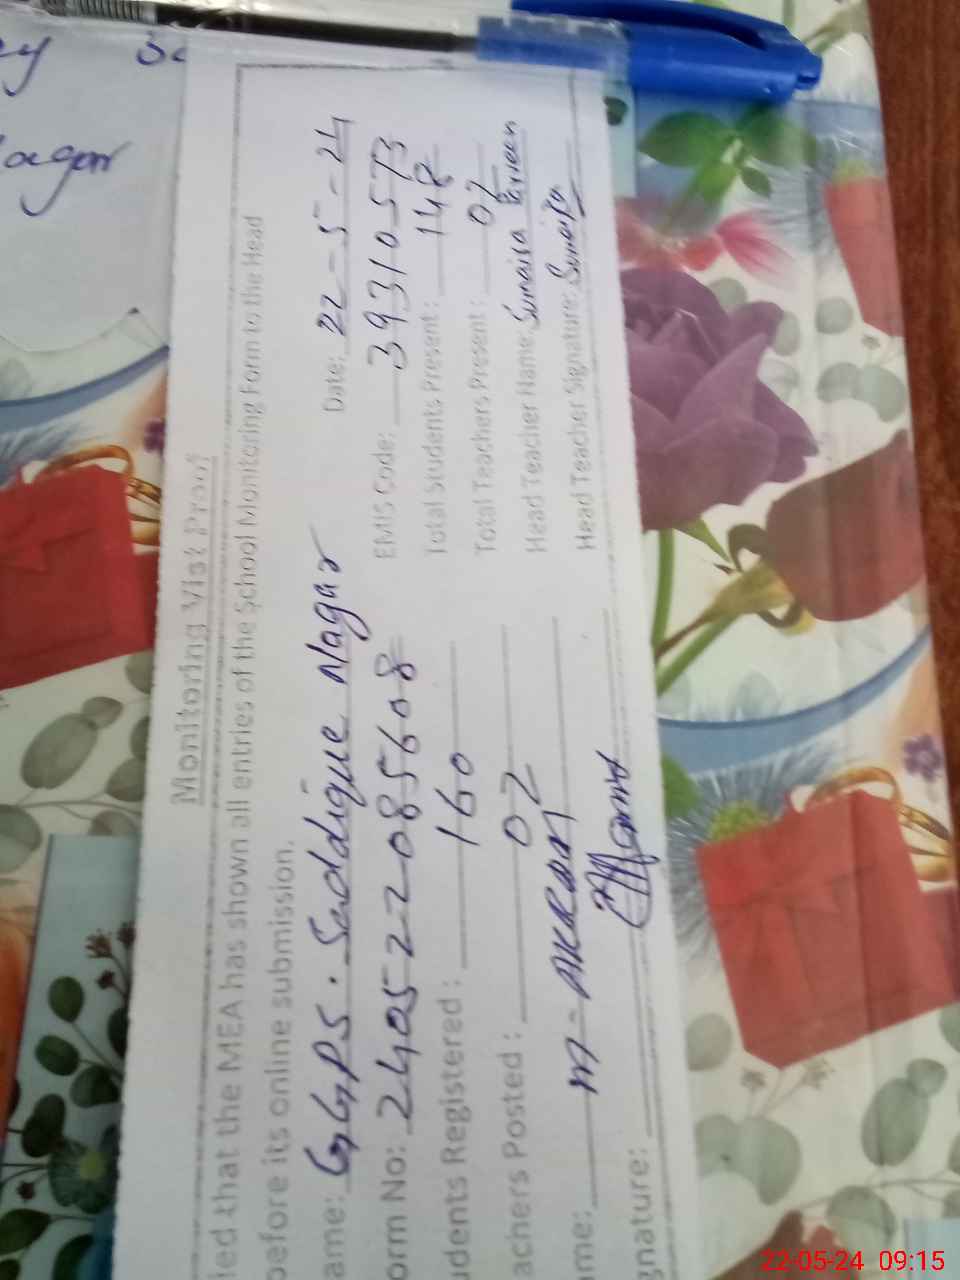 Monitoring Vist Proof
ied that the MEA has shown all entries of the School Monitoring Form to the Head
before its online submission.
ame: GGPS. Saddique Nagar Date: 22-5-24
orm No: 240522085608 EMIS Code: 39310573
udents Registered: 160 Total Students Present: 148
achers Posted: 02 Total Teachers Present: 02
me: M-AKRAM Head Teacher Name: Sumaira Parveen
gnature: Head Teacher Signature: Sumaira
agar
22-05-24 09:15